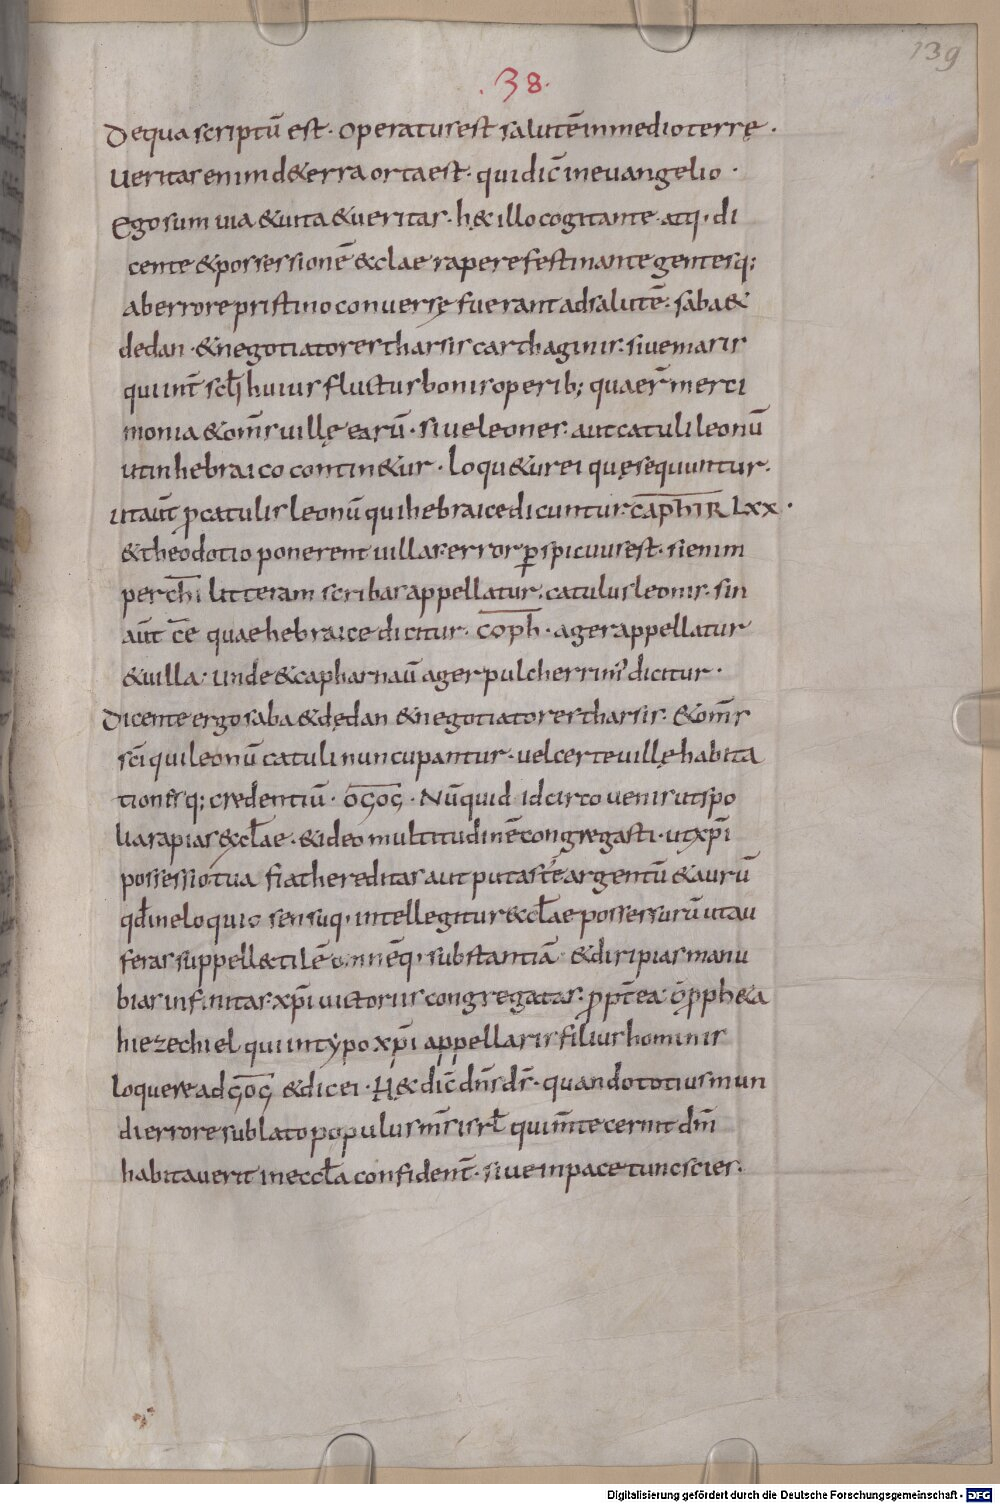 139
.38.
De qua scriptū est· Operatus est salutē in medio terrę·
Ueritas enim d&erra orta est· qui dic̄ in evangelio·
Ego sum uia &uita &ueritas· h&̨ illo cogitante atq· di
cente &possessionē &clae rapere festinante gentesq;
ab errore pristino conversę fuerant ad salutē· saba &
dedan ·&negotiatores tharsis carthaginis· siue maris
qui int̄ sc̄l̄i huius fluctus bonis operib; quaer̄ merci
monia &om̄s villę earū· siue leones· aut catuli leonū
ut in hebraico contin&ur· loqu&ur ei quę sequuntur·
ut aūt p̄ catulis leonū qui hebraice dicuntur c̄aphir LXX·
&theodotio ponerent uillas· error ꝑspicuus est· si enim
per ch̄i litteram scribas appellatur· catulus leonis· sin
aūt c̄e quae hebraice dicitur· c̄oph· ager appellatur
&uilla· unde &capharnaū ager pulcherrim᾽ dicitur·
Dicente ergo saba &dędan &negotiatores tharsis· &om̄s
sc̄i qui leonū catuli nuncupantur· uel certe uillę habita
tionesq; credentiū· o gog· Nūquid idcirco uenis ut spo
lia rapias &cl̄ae· &ideo multitudinē congregasti· ut xp̄i
possessio tua fiat hereditas aut putas te argentū &aurū
qd̄ in eloquio sensuq· intellegitur &cl̄ae possessurū ut au
feras suppell&tilē omnēq· substantiā &diripias manu
bias infinitas xp̄i uictoriis congregatas· p̄pt̄ea o p̄ph&a
hiezechiel qui in typo xp̄i appellaris filius hominis
loquere ad gog &dic ei· H&̨ dic̄ dn̄s ds̄· quando totius mun
di errore sublato populus m̄s isrl̄ qui m̄te cernit dm̄
habitauerit in eccl̄a confident̄· siue in pace tunc scies·
Digitalisierung gefördert durch die Deutsche Forschungsgemeinschaft · DFG